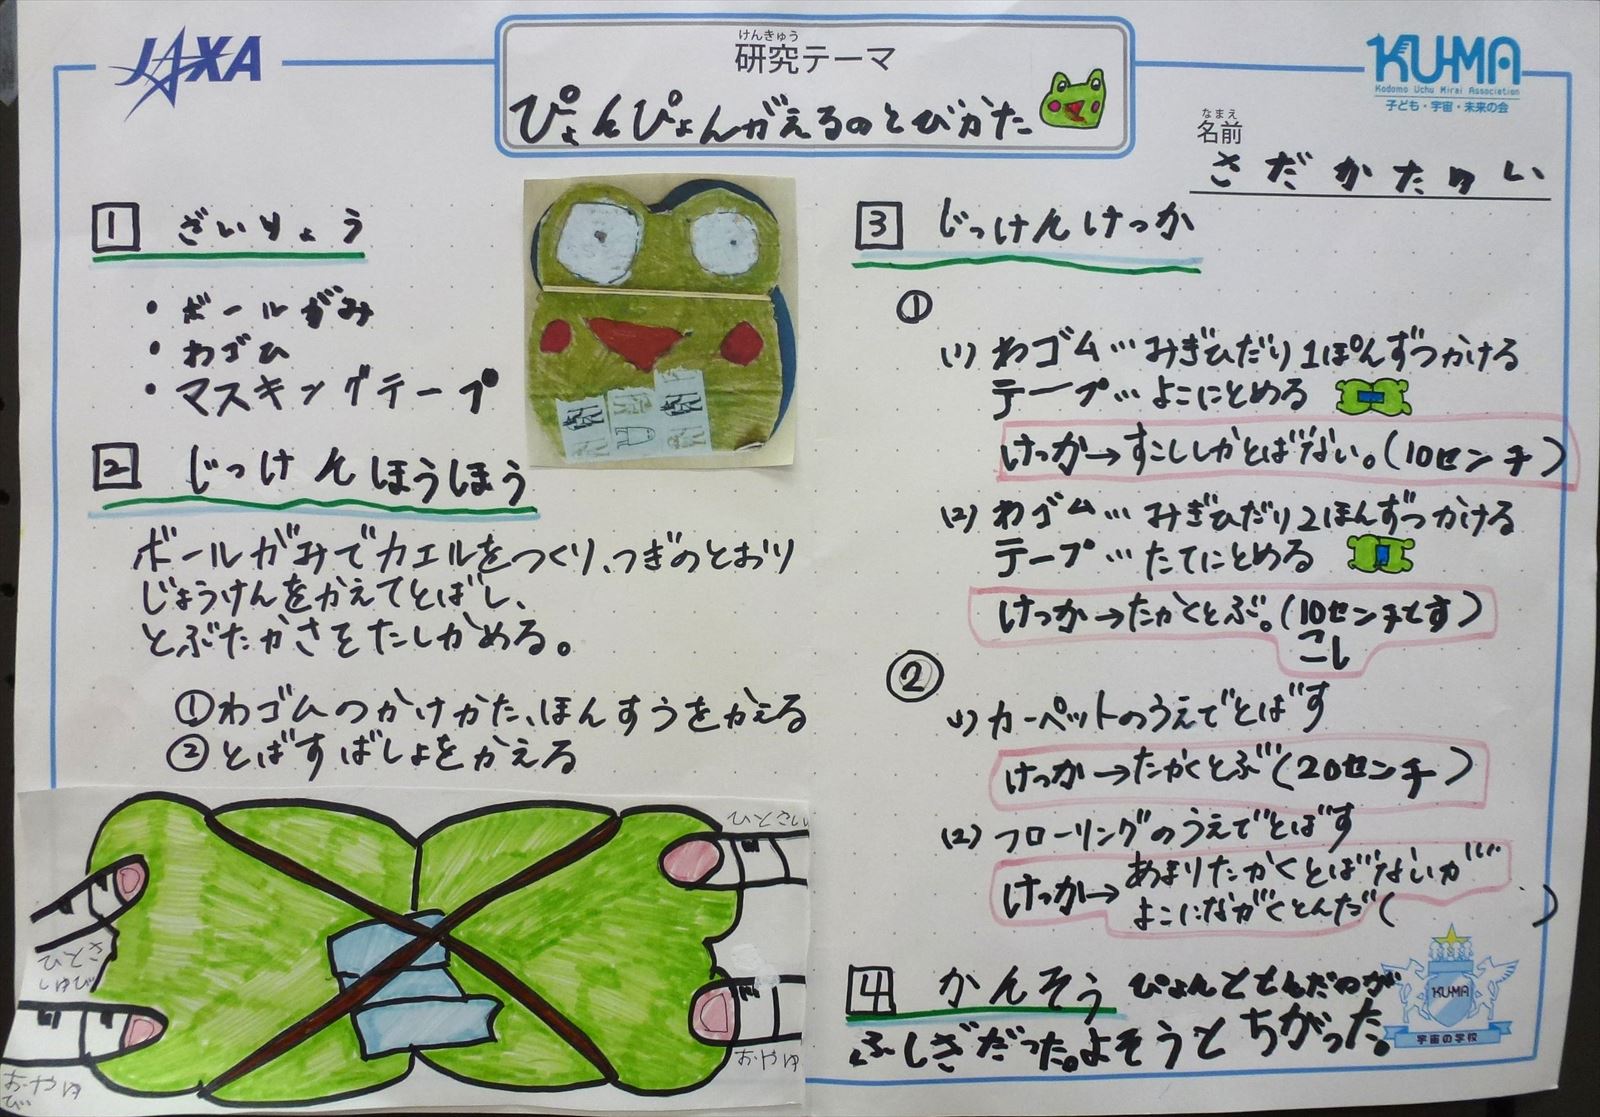 JAXA
けんきゅう
研究テーマ
ぴょんぴょんがえるのとびかた
KU-MA
Kodomo Uchu Mirai Association
子ども・宇宙・未来の会
なまえ
名前
さだかた
1 ざいりょう
・ボールがみ
・わゴム
・マスキングテープ
2 じっけんほうほう
ボールがみでカエルをつくり、つぎのとおり
じょうけんをかえてとばし、
とぶたかさをたしかめる。
①わゴムのかけかた、ほんすうをかえる
②とばすばしょをかえる
ひとさ
しゆび
おやゆ
び
ひとさ
おやゆ
3 じっけんけっか
①
(1) わゴム…みぎひだり1ぽんずつかける
テープ…よこにとめる
けっか→すこししかとばない。(10センチ)
(2) わゴム…みぎひだり2ほんずつかける
テープ…たてにとめる
けっか→たかくとぶ。(10センチとす
こし)
②
(1) カーペットのうえでとばす
けっか→たかくとぶ(20センチ)
(2) フローリングのうえでとばす
けっか→あまりたかくとばないが
よこにながくとんだ( )
4 かんそう ぴょんととんだのが
ふしぎだった。よそうとちがった。
KU-MA
宇宙の学校